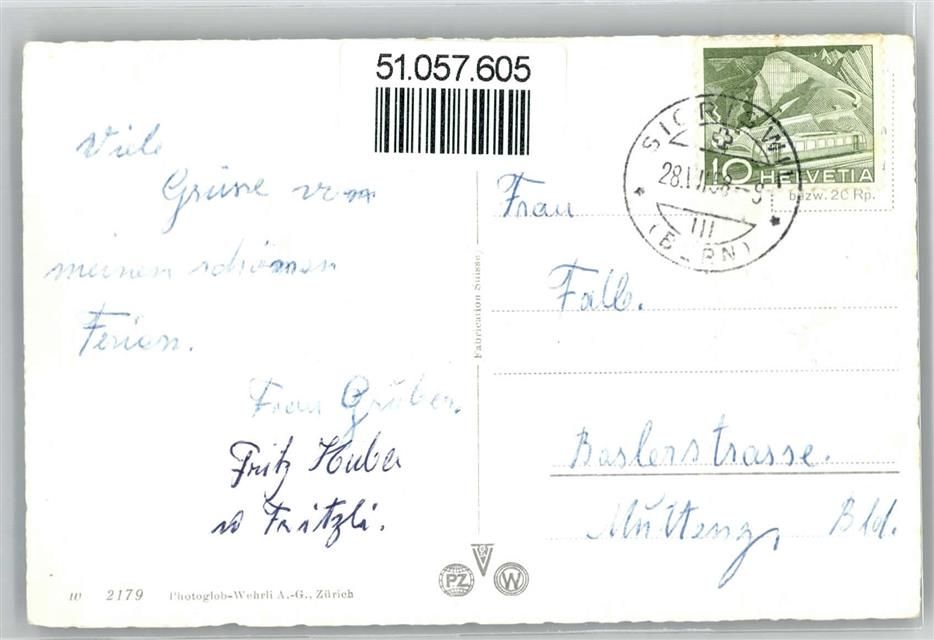 51.057.605
Viele
Grüsse von
meinen schönen
Ferien.
Frau Gruber.
Fritz Huber
u Fritzli.
w 2179 Photoglob-Wehrli A.-G., Zürich
Fabrication Suisse
PZ W
10 HELVETIA
bzw. 20 Rp.
SIGRISWIL
28.VII.58-9
III
(BERN)
Frau
Falb.
Baslerstrasse.
Muttenz, Bld.